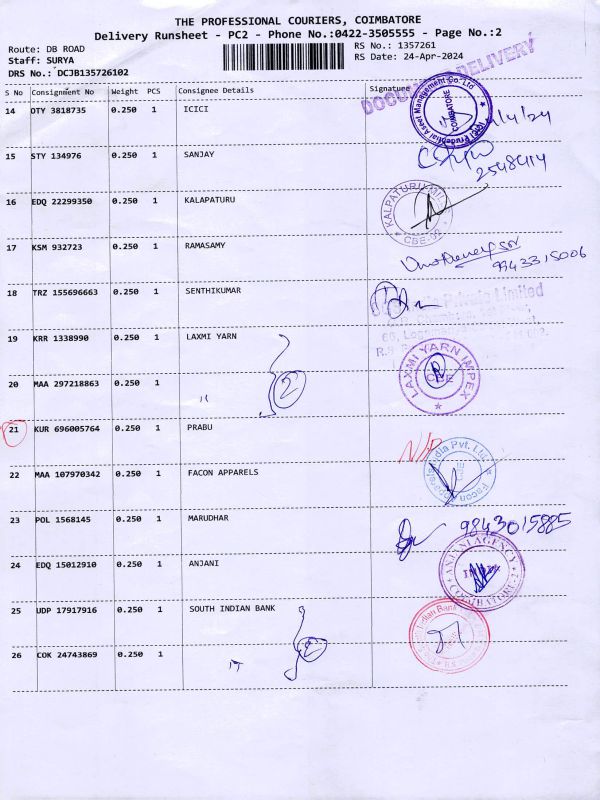 THE PROFESSIONAL COURIERS, COIMBATORE
Delivery Runsheet - PC2 - Phone No.:0422-3505555 - Page No.:2
Route: DB ROAD RS No.: 1357261
Staff: SURYA RS Date: 24-Apr-2024
DRS No.: DCJB135726102
S No Consignment No Weight PCS Consignee Details Signature
14 OTY 3818735 0.250 1 ICICI
15 STY 134976 0.250 1 SANJAY
2548414
16 EDQ 22299350 0.250 1 KALAPATURU
17 KSM 932723 0.250 1 RAMASAMY
9943315006
18 TRZ 155696663 0.250 1 SENTHIKUMAR
Private Limited
19 KRR 1338990 0.250 1 LAXMI YARN
LAXMI YARN IMPEX CBE
20 MAA 297218863 0.250 1 " 2
21 KUR 696005764 0.250 1 PRABU
22 MAA 107970342 0.250 1 FACON APPARELS
Facon Apparels India Pvt. Ltd.
23 POL 1568145 0.250 1 MARUDHAR
9843015885
24 EDQ 15012910 0.250 1 ANJANI
AGENCY COIMBATORE
25 UDP 17917916 0.250 1 SOUTH INDIAN BANK
Indian Bank
26 COK 24743869 0.250 1 " 2